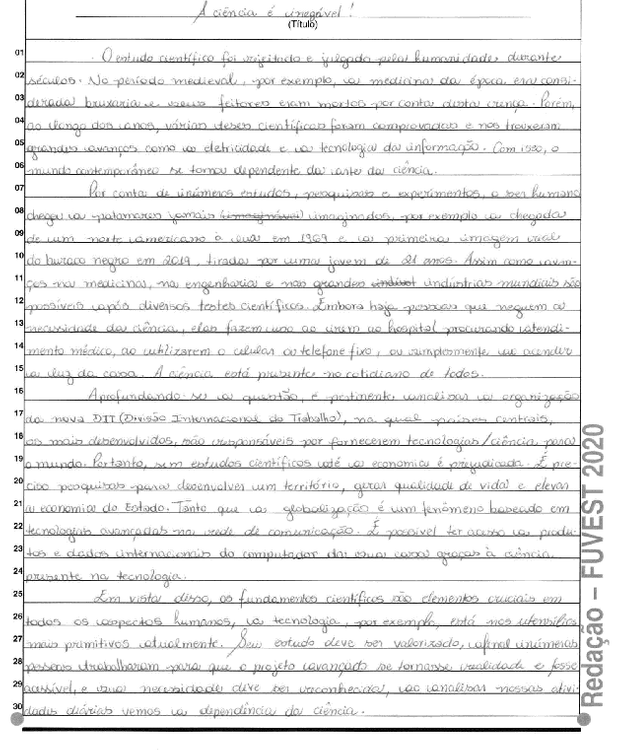 A ciência é inegável!
(Título)
01 O estudo científico foi rejeitado e julgado pela humanidade durante
02 séculos. No período medieval, por exemplo, a medicina da época era consi-
03 derada bruxaria e seus feitores eram mortos por conta dessa crença. Porém,
04 ao longo dos anos, várias teses científicas foram comprovadas e nos trouxeram
05 grandes avanços como a eletricidade e a tecnologia da informação. Com isso, o
06 mundo contemporâneo se tornou dependente da arte da ciência.
07 Por conta de inúmeros estudos, pesquisas e experimentos, o ser humano
08 chegou a patamares jamais imaginados, por exemplo a chegada
09 de um norte americano à lua em 1969 e a primeira imagem real
10 do buraco negro em 2019, tirada por uma jovem de 21 anos. Assim como avan-
11 ços na medicina, na engenharia e nas grandes indústrias mundiais são
12 possíveis após diversos testes científicos. Embora haja pessoas que neguem a
13 necessidade da ciência, elas fazem uso ao irem ao hospital procurando atendi-
14 mento médico, ao utilizarem o celular ou telefone fixo, ou simplesmente ao acender
15 a luz da casa. A ciência está presente no cotidiano de todos.
16 Aprofundando-se a questão, é pertinente analisar a organização
17 da nova DIT (Divisão Internacional do Trabalho), na qual países centrais,
18 os mais desenvolvidos, são responsáveis por fornecerem tecnologias/ciência para
19 o mundo. Portanto, sem estudos científicos até a economia é prejudicada. É pre-
20 ciso pesquisas para desenvolver um território, gerar qualidade de vida e elevar
21 a economia do Estado. Tanto que a globalização é um fenômeno baseado em
22 tecnologias avançadas na rede de comunicação. É possível ter acesso a produ-
23 tos e dados internacionais do computador da sua casa graças à ciência
24 presente na tecnologia.
25 Em vista disso, os fundamentos científicos são elementos cruciais em
26 todos os aspectos humanos, a tecnologia, por exemplo, está nos utensílios
27 mais primitivos atualmente. Seu estudo deve ser valorizado, afinal inúmeras
28 pessoas trabalharam para que o projeto avançado se tornasse realidade e fosse
29 acessível, e sua necessidade deve ser reconhecida, ao analisar nossas ativi-
30 dades diárias vemos a dependência da ciência.
Redação – FUVEST 2020